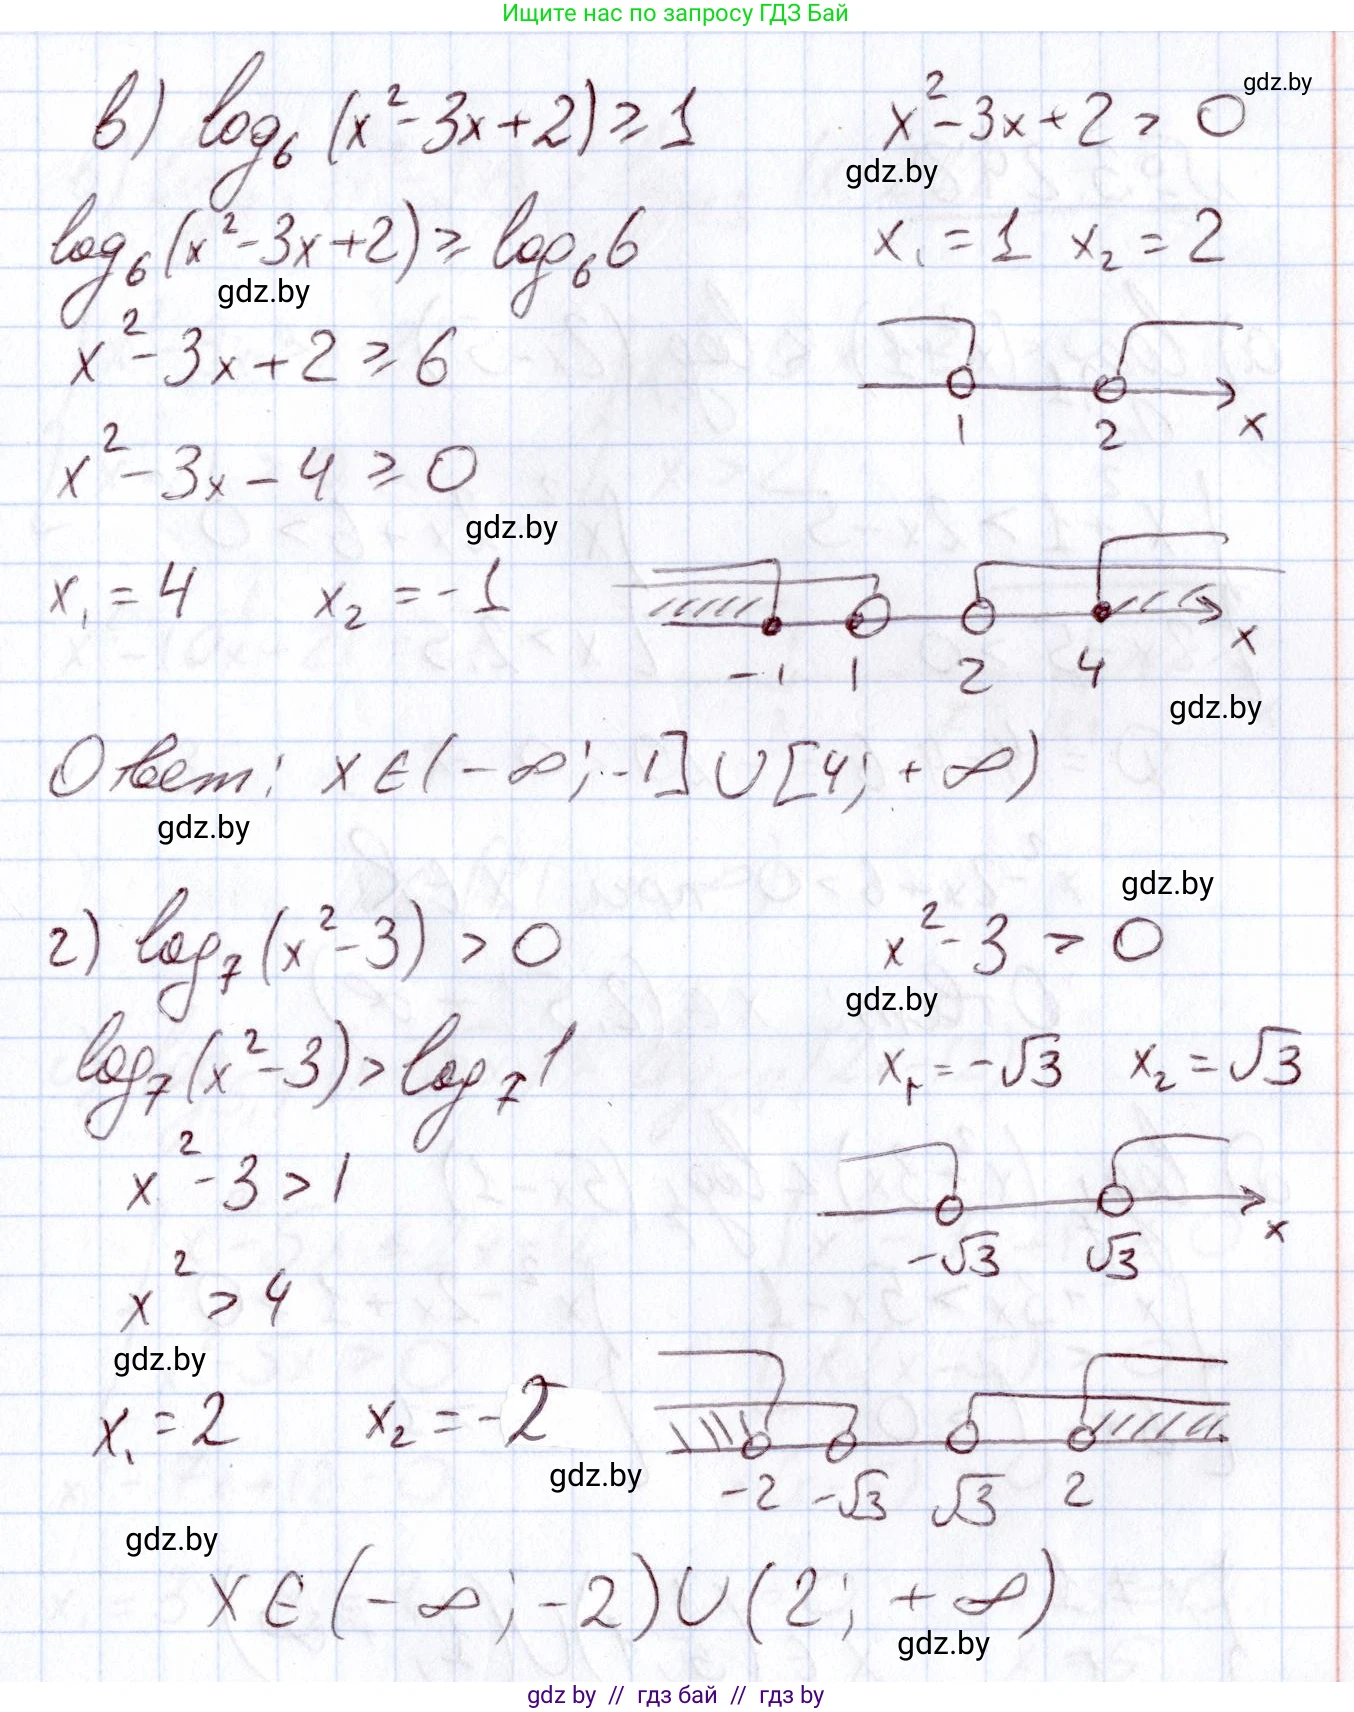 Ищите нас по запросу ГДЗ Бай
gdz.by
в) log₆ (x² - 3x + 2) ≥ 1
x² - 3x + 2 > 0
gdz.by
log₆ (x² - 3x + 2) ≥ log₆ 6
x₁ = 1 x₂ = 2
gdz.by
x² - 3x + 2 ≥ 6
1 2 x
x² - 3x - 4 ≥ 0
gdz.by
x₁ = 4 x₂ = -1
-1 1 2 4 x
gdz.by
Ответ: x ∈ (-∞; -1] ∪ [4; +∞)
gdz.by
gdz.by
г) log₇ (x² - 3) > 0
x² - 3 > 0
gdz.by
log₇ (x² - 3) > log₇ 1
x₁ = -√3 x₂ = √3
x² - 3 > 1
-√3 √3 x
x² > 4
gdz.by
x₁ = 2 x₂ = -2
gdz.by
-2 -√3 √3 2
gdz.by
x ∈ (-∞; -2) ∪ (2; +∞)
gdz.by
gdz by // гдз бай // гдз by